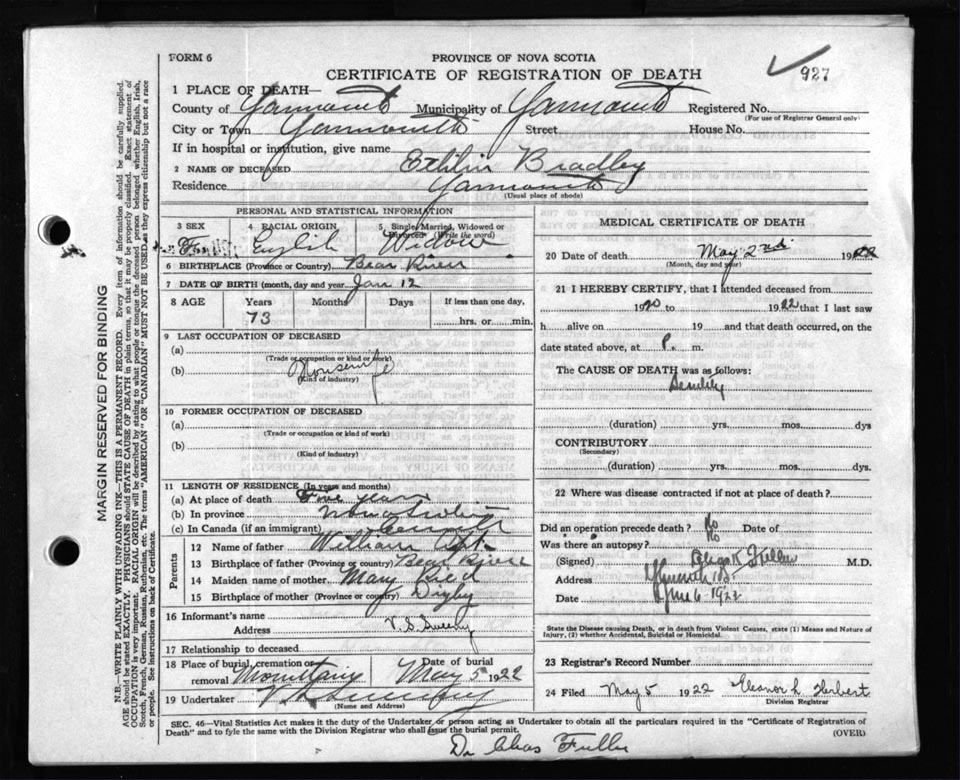 927
FORM 6
PROVINCE OF NOVA SCOTIA
CERTIFICATE OF REGISTRATION OF DEATH
1 PLACE OF DEATH—
County of Yarmouth Municipality of Yarmouth Registered No.
(For use of Registrar General only)
City or Town Yarmouth Street House No.
If in hospital or institution, give name
2 NAME OF DECEASED Bradley
Residence Yarmouth
(Usual place of abode)
PERSONAL AND STATISTICAL INFORMATION
3 SEX 4 RACIAL ORIGIN 5 Single, Married, Widowed or Divorced (Write the word)
English Widow
6 BIRTHPLACE (Province or Country) Bear River
7 DATE OF BIRTH (month, day and year) Jan 12
8 AGE Years Months Days If less than one day,
73 hrs. or min.
9 LAST OCCUPATION OF DECEASED
(a)
(Trade or occupation or kind of work)
(b) Housewife
(Kind of industry)
10 FORMER OCCUPATION OF DECEASED
(a)
(Trade or occupation or kind of work)
(b)
(Kind of industry)
11 LENGTH OF RESIDENCE (In years and months)
(a) At place of death Five years
(b) In province Nova Scotia
(c) In Canada (if an immigrant)
Parents
12 Name of father William
13 Birthplace of father (Province or country) Bear River
14 Maiden name of mother Mary
15 Birthplace of mother (Province or country) Digby
16 Informant's name V. S. Sweeny
Address
17 Relationship to deceased
18 Place of burial, cremation or removal Mountain Date of burial May 5 1922
19 Undertaker V S Sweeny
(Name and Address)
MEDICAL CERTIFICATE OF DEATH
20 Date of death May 2nd 1922
(Month, day and year)
21 I HEREBY CERTIFY, that I attended deceased from
1920 to 1922 that I last saw
h alive on 19 and that death occurred, on
date stated above, at P. m.
The CAUSE OF DEATH was as follows:
Senility
(duration) yrs. mos. dys
CONTRIBUTORY
(Secondary)
(duration) yrs. mos. dys.
22 Where was disease contracted if not at place of death?
Did an operation precede death? No Date of
Was there an autopsy? No
(Signed) Fuller M.D.
Address
Date 6 1922
State the Disease causing Death, or in death from Violent Causes, state (1) Means and Nature of
Injury, (2) whether Accidental, Suicidal or Homicidal.
23 Registrar's Record Number
24 Filed May 5 1922 Eleanor L Herbert
Division Registrar
SEC. 46—Vital Statistics Act makes it the duty of the Undertaker or person acting as Undertaker to obtain all the particulars required in the "Certificate of Registration of
Death" and to fyle the same with the Division Registrar who shall issue the burial permit. (OVER)
Dr Chas Fuller
MARGIN RESERVED FOR BINDING
N.B. WRITE PLAINLY WITH UNFADING INK—THIS IS A PERMANENT RECORD. Every item of information should be carefully supplied.
AGE should be stated EXACTLY. PHYSICIANS should STATE CAUSE OF DEATH in plain terms, so that it may be properly classified. Exact statement of
OCCUPATION is very important. RACIAL ORIGIN will be described by stating to what people or tongue the deceased person belonged whether English, Irish,
Scotch, French, German, Russian, Ruthenian, etc. The terms "AMERICAN" or "CANADIAN" MUST NOT BE USED as they express citizenship but not a race
or people. See instructions on back of Certificate.